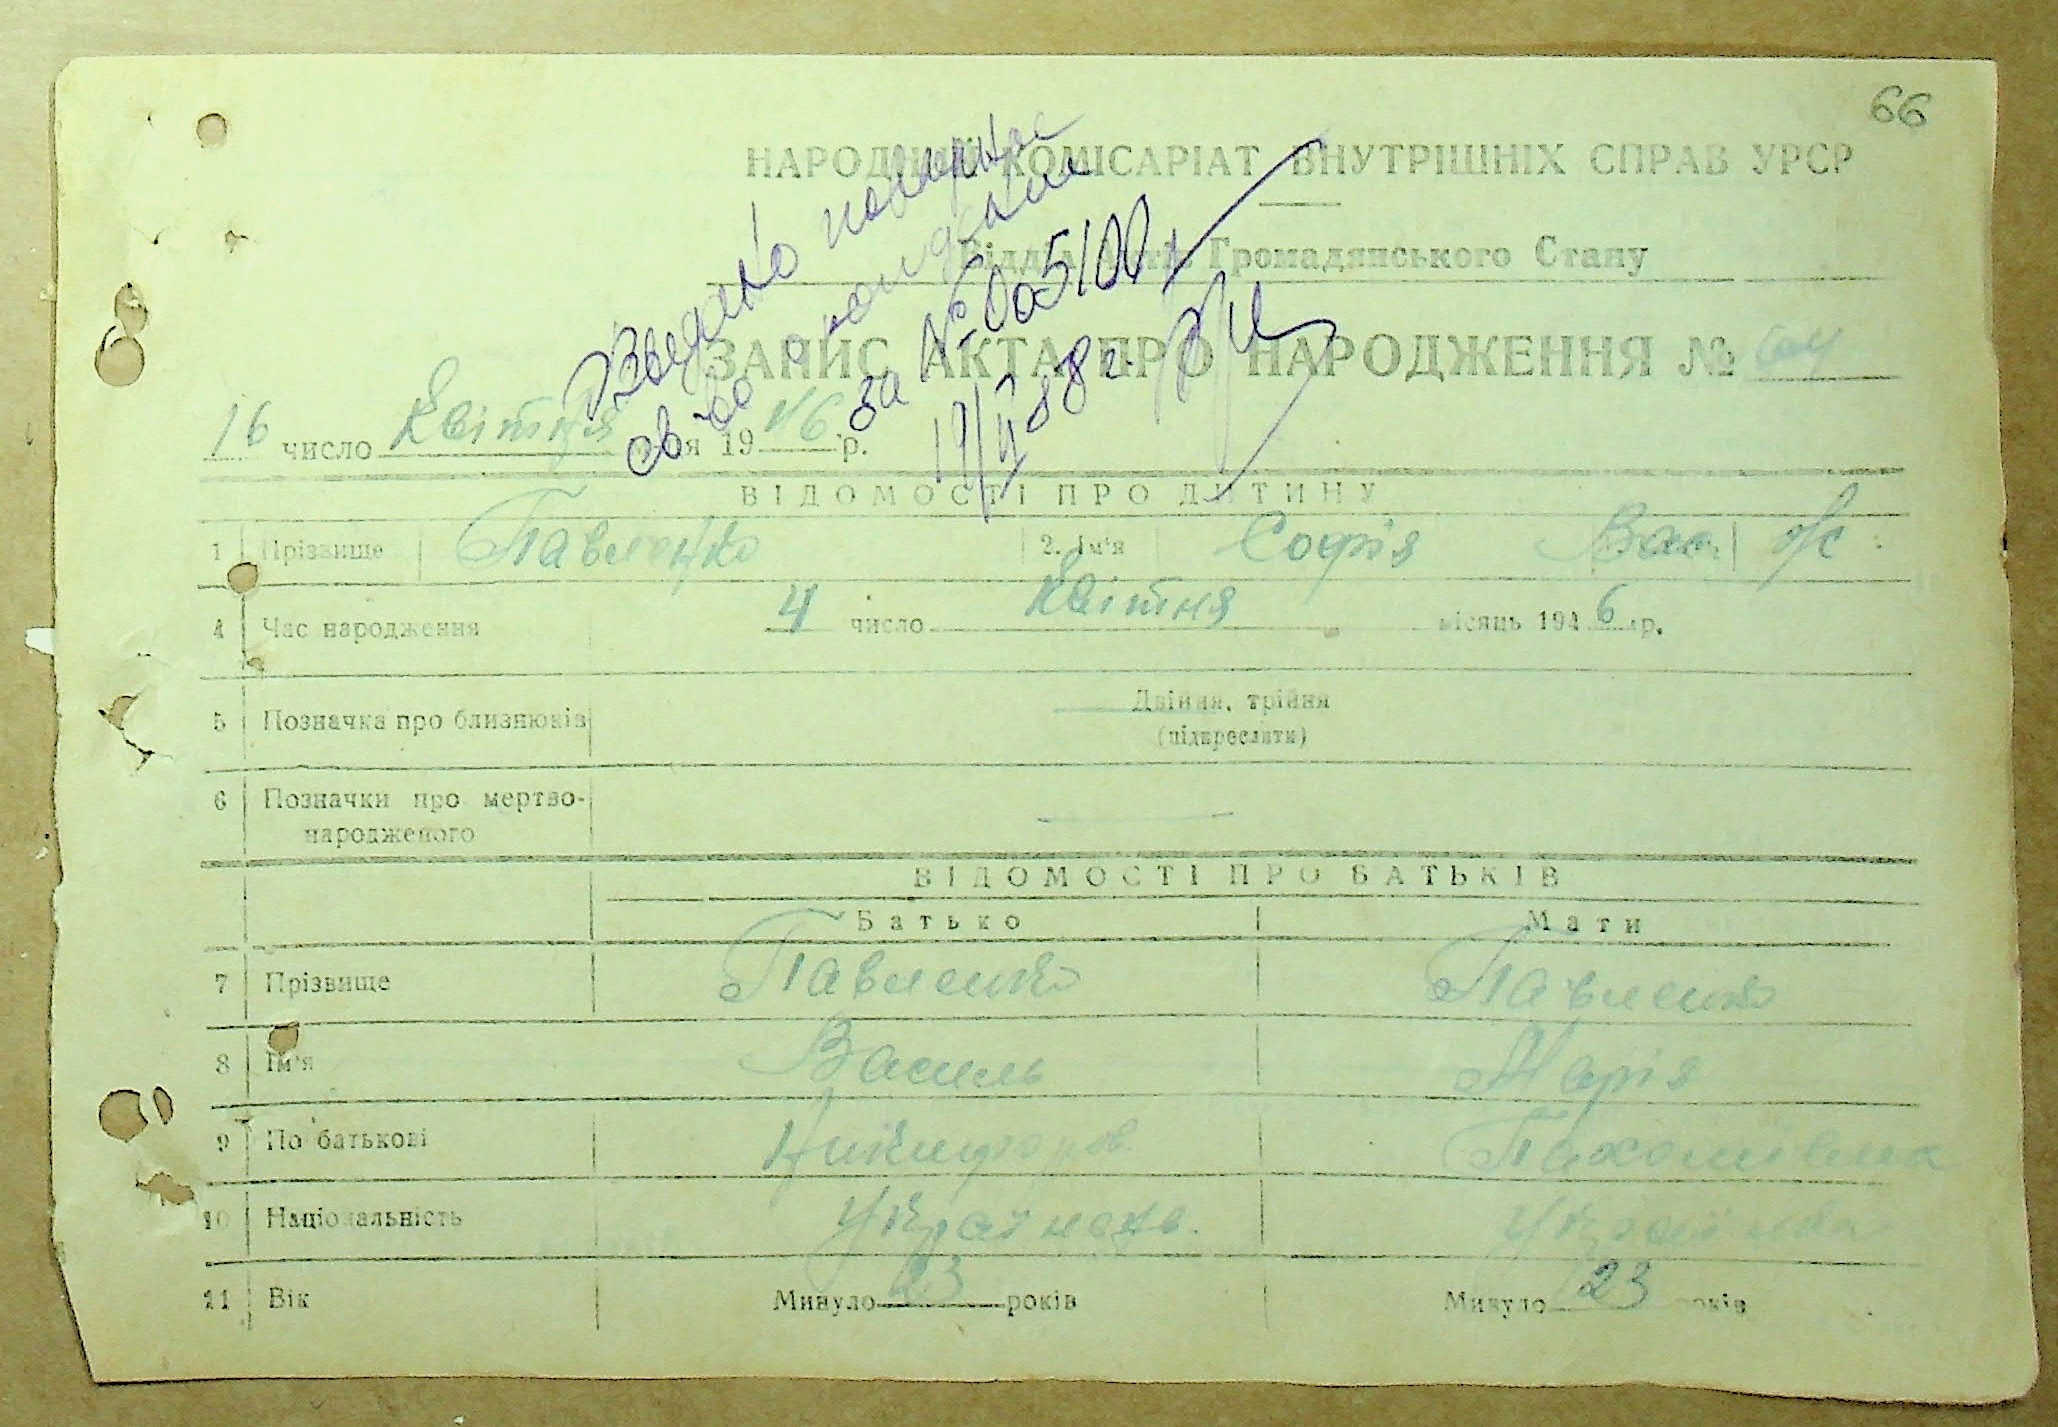 66
НАРОДНИЙ КОМІСАРІАТ ВНУТРІШНІХ СПРАВ УРСР
Відділ Актів Громадянського Стану
ЗАПИС АКТА ПРО НАРОДЖЕННЯ №
повторное
св-во о рождении
за №
88 г.
16 число Квітня 1946 р.
ВІДОМОСТІ ПРО ДИТИНУ
1 Прізвище Павленко 2. Ім'я Софія Вас. ж
4 Час народження 4 число Квітня місяць 1946 р.
5 Позначка про близнюків Двійня, трійня
(підкреслити)
6 Позначки про мертво-
народженого
ВІДОМОСТІ ПРО БАТЬКІВ
Батько Мати
7 Прізвище Павленко Павленко
8 Ім'я Василь Марія
9 По батькові Никифоров. Пахомівна
10 Національність Українець. Українка
11 Вік Минуло 23 років Минуло 23 років